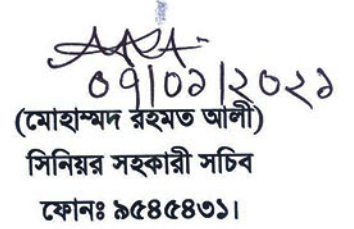 ০৭|০১|২০২১
(মোহাম্মদ রহমত আলী)
সিনিয়র সহকারী সচিব
ফোনঃ ৯৫৪৫৪৩১।